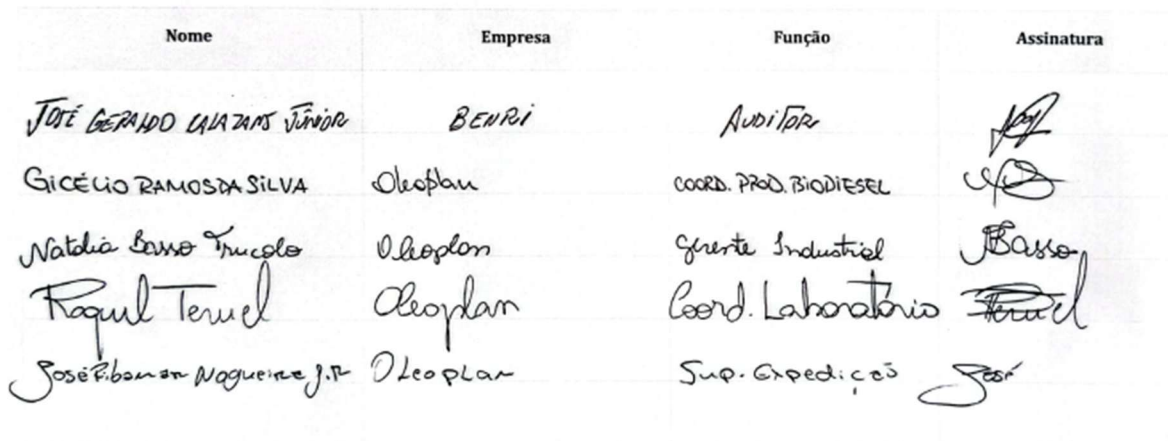 Nome Empresa Função Assinatura
JOSÉ GERALDO CALAZANS JÚNIOR BENRI AUDITOR
GICÉLIO RAMOS DA SILVA Oleoplan COORD. PROD. BIODIESEL
Natalia Basso Trucolo Oleoplan Gerente Industrial Basso
Raquel Teruel Oleoplan Coord. Laboratório Teruel
José Ribamar Nogueira Jr Oleoplan Sup. Expedição José